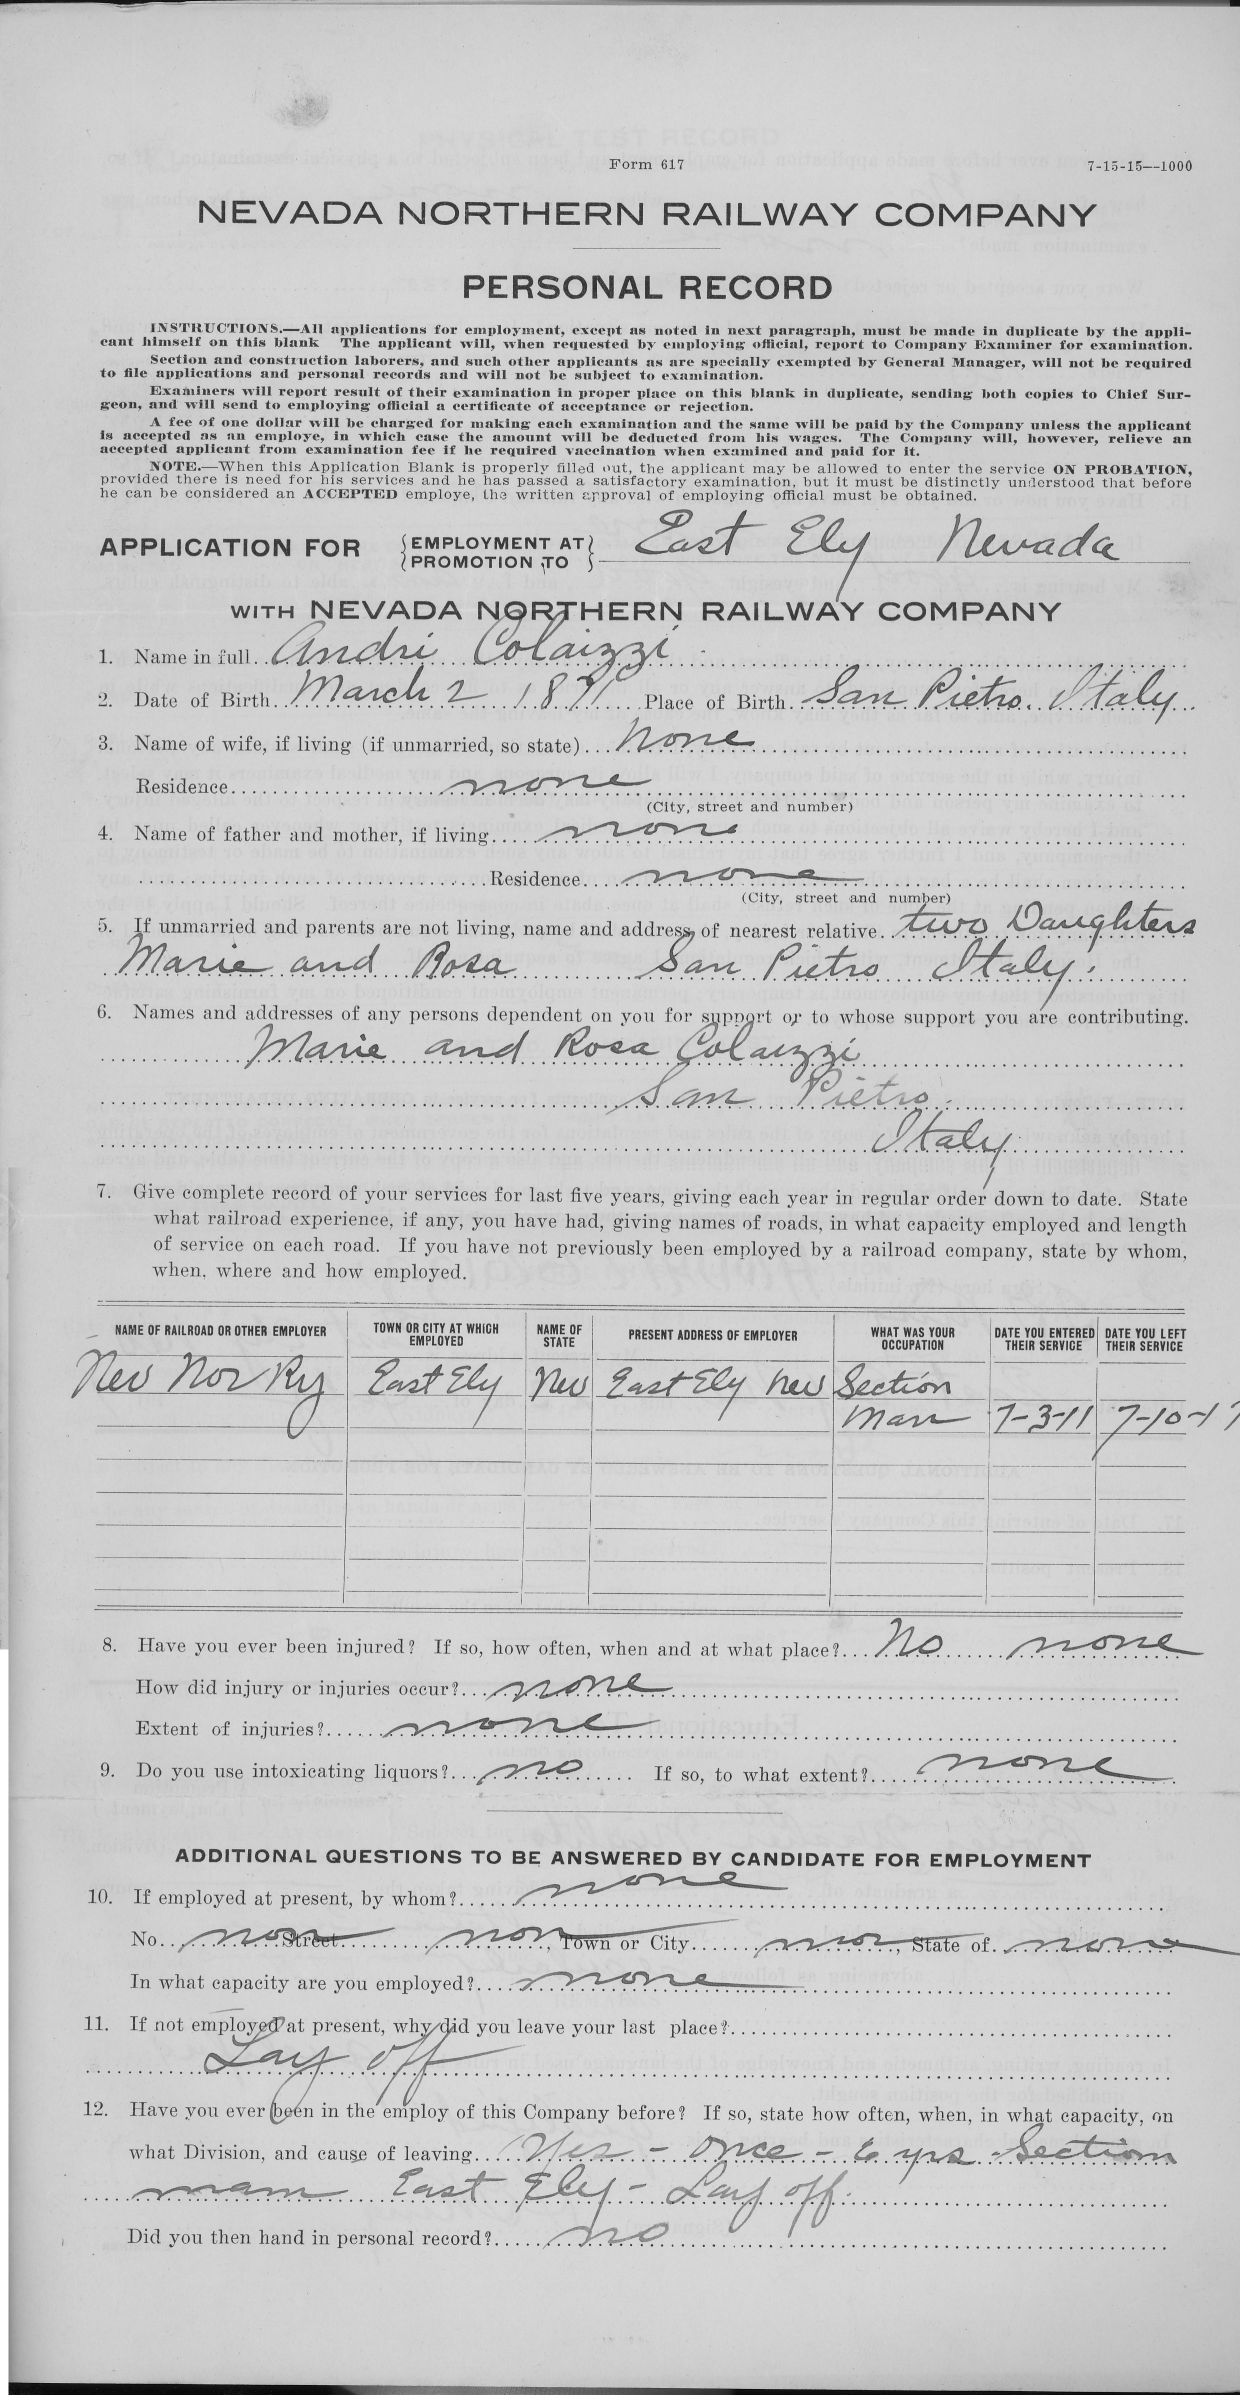 Form 617
7-15-15—1000
NEVADA NORTHERN RAILWAY COMPANY
PERSONAL RECORD
INSTRUCTIONS.—All applications for employment, except as noted in next paragraph, must be made in duplicate by the appli-
cant himself on this blank The applicant will, when requested by employing official, report to Company Examiner for examination.
Section and construction laborers, and such other applicants as are specially exempted by General Manager, will not be required
to file applications and personal records and will not be subject to examination.
Examiners will report result of their examination in proper place on this blank in duplicate, sending both copies to Chief Sur-
geon, and will send to employing official a certificate of acceptance or rejection.
A fee of one dollar will be charged for making each examination and the same will be paid by the Company unless the applicant
is accepted as an employe, in which case the amount will be deducted from his wages. The Company will, however, relieve an
accepted applicant from examination fee if he required vaccination when examined and paid for it.
NOTE.—When this Application Blank is properly filled out, the applicant may be allowed to enter the service ON PROBATION,
provided there is need for his services and he has passed a satisfactory examination, but it must be distinctly understood that before
he can be considered an ACCEPTED employe, the written approval of employing official must be obtained.
APPLICATION FOR {EMPLOYMENT AT} East Ely Nevada
{PROMOTION TO}
WITH NEVADA NORTHERN RAILWAY COMPANY
1. Name in full.. Andri Colaizzi
2. Date of Birth. March 2 1871 Place of Birth. San Pietro. Italy
3. Name of wife, if living (if unmarried, so state)... None
Residence... none
(City, street and number)
4. Name of father and mother, if living.... none
Residence.... none
(City, street and number)
5. If unmarried and parents are not living, name and address of nearest relative. two Daughters
Marie and Rosa San Pietro Italy.
6. Names and addresses of any persons dependent on you for support or to whose support you are contributing.
Marie and Rosa Colaizzi
San Pietro
Italy
7. Give complete record of your services for last five years, giving each year in regular order down to date. State
what railroad experience, if any, you have had, giving names of roads, in what capacity employed and length
of service on each road. If you have not previously been employed by a railroad company, state by whom,
when, where and how employed.
NAME OF RAILROAD OR OTHER EMPLOYER TOWN OR CITY AT WHICH EMPLOYED NAME OF STATE PRESENT ADDRESS OF EMPLOYER WHAT WAS YOUR OCCUPATION DATE YOU ENTERED THEIR SERVICE DATE YOU LEFT THEIR SERVICE
Nev Nor Ry East Ely Nev East Ely Nev Section
Man 7-3-11 7-10-17
8. Have you ever been injured? If so, how often, when and at what place?... No none
How did injury or injuries occur?... none
Extent of injuries?..... none
9. Do you use intoxicating liquors?... no If so, to what extent?.... none
ADDITIONAL QUESTIONS TO BE ANSWERED BY CANDIDATE FOR EMPLOYMENT
10. If employed at present, by whom?..... none
No.. non Street. non, Town or City.... non, State of. none
In what capacity are you employed?.... none
11. If not employed at present, why did you leave your last place?
Lay off
12. Have you ever been in the employ of this Company before? If so, state how often, when, in what capacity, on
what Division, and cause of leaving.. Yes - once - 6 yrs - Section
mam East Ely - Lay off.
Did you then hand in personal record?.... no